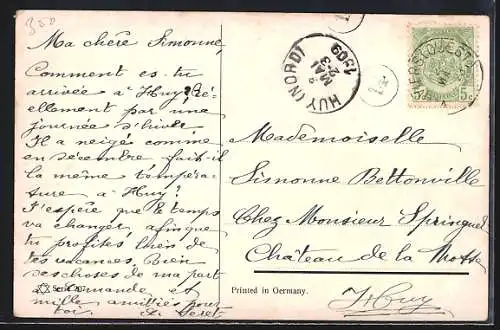 350
Ma chère Simonne,
Comment es-tu
arrivée à Huy? Ré-
ellement par une
journée d'hiver
Il a neigé comme
en décembre fait-il
la même tempéra-
ture à Huy?
J'espère que le temps
va changer, afin que
tu profites bien de
tes vacances. Bien
des choses de ma part
à Armande et
mille amitiés pour
toi.
Printed in Germany.
HUY (NORD)
MAI
1909
5c
Mademoiselle
Simonne Bettonville
Chez Monsieur Springuel
Château de la Motte
Huy